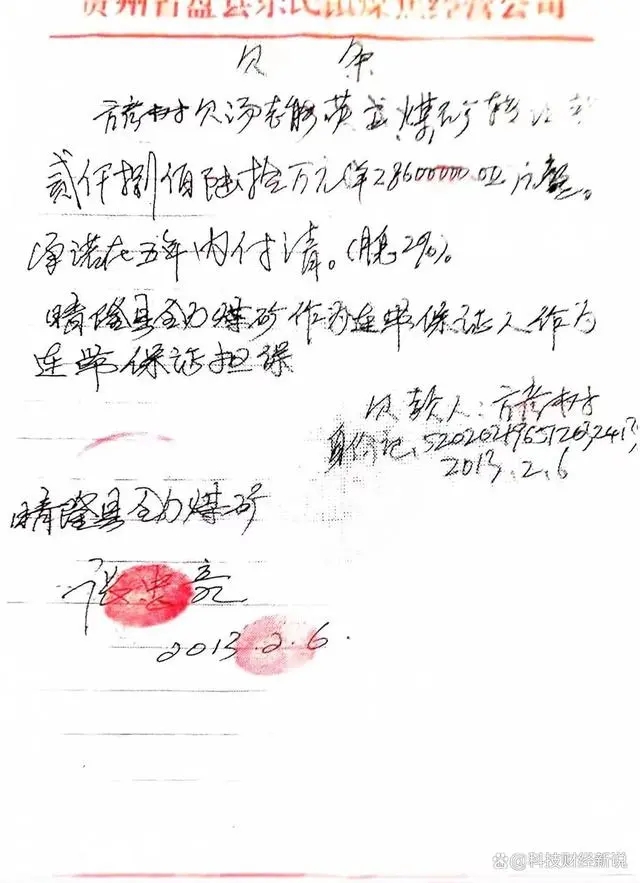 贵州省盘县乐民镇煤焦经营公司
欠 条
欠汤志 煤矿转让
贰仟捌佰陆拾万元(¥28600000.00元整。
承诺在五年内付清。(息2%)。
晴隆县全力煤矿作为连带保证人作为
连带保证担保
欠款人:
身份证:
2013.2.6
晴隆县全力煤矿
张忠亮
2013.2.6.
@科技财经新说